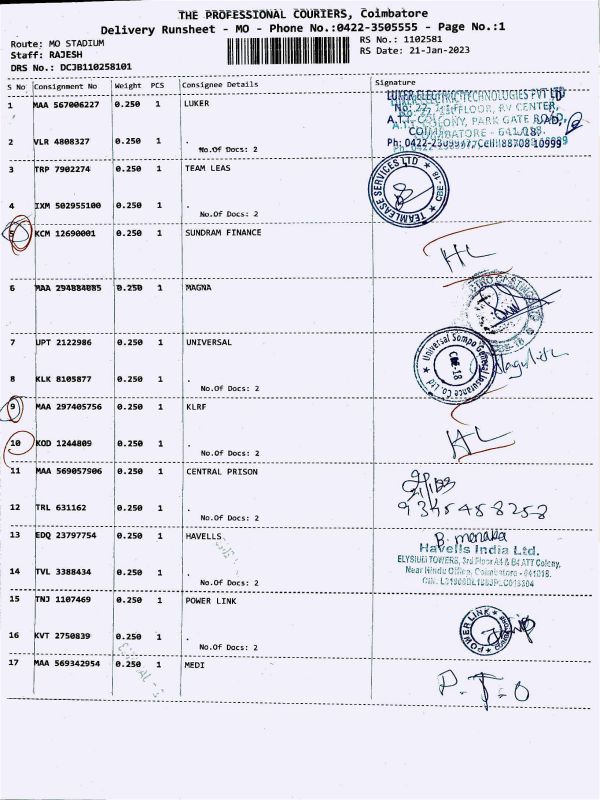 THE PROFESSIONAL COURIERS, Coimbatore
Delivery Runsheet - MO - Phone No.:0422-3505555 - Page No.:1
Route: MO STADIUM
RS No.: 1102581
Staff: RAJESH
RS Date: 21-Jan-2023
DRS No.: DCJB110258101
S No Consignment No Weight PCS Consignee Details Signature
1 MAA 567006227 0.250 1 LUKER
LUKER ELECTRIC TECHNOLOGIES PVT LTD
A.T.T. COLONY, PARK GATE ROAD,
COIMBATORE - 641 018.
2 VLR 4808327 0.250 1 .
No.Of Docs: 2
3 TRP 7902274 0.250 1 TEAM LEAS
TEAMLEASE SERVICES LTD ★ CBE-18
4 IXM 502955100 0.250 1 .
No.Of Docs: 2
5 KCM 12690001 0.250 1 SUNDRAM FINANCE
HL
6 MAA 294884085 0.250 1 MAGNA
7 UPT 2122986 0.250 1 UNIVERSAL
Universal Sompo General Insurance Co. Ltd ★ CBE-18
8 KLK 8105877 0.250 1 .
No.Of Docs: 2
9 MAA 297405756 0.250 1 KLRF
10 KOD 1244809 0.250 1 .
HL
No.Of Docs: 2
11 MAA 569057906 0.250 1 CENTRAL PRISON
12 TRL 631162 0.250 1 .
No.Of Docs: 2
13 EDQ 23797754 0.250 1 HAVELLS
B. menaka
Havells India Ltd.
ELYSIUM TOWERS, 3rd Floor A4 & B4 ATT Colony,
Near Hindu Office, Coimbatore - 641018.
14 TVL 3388434 0.250 1 .
No.Of Docs: 2
15 TNJ 1107469 0.250 1 POWER LINK
POWER LINK
16 KVT 2750839 0.250 1 .
No.Of Docs: 2
17 MAA 569342954 0.250 1 MEDI
P.T-O